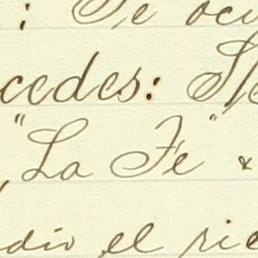 : Te ocu
cedes:
"La Fe" &
dio el rie